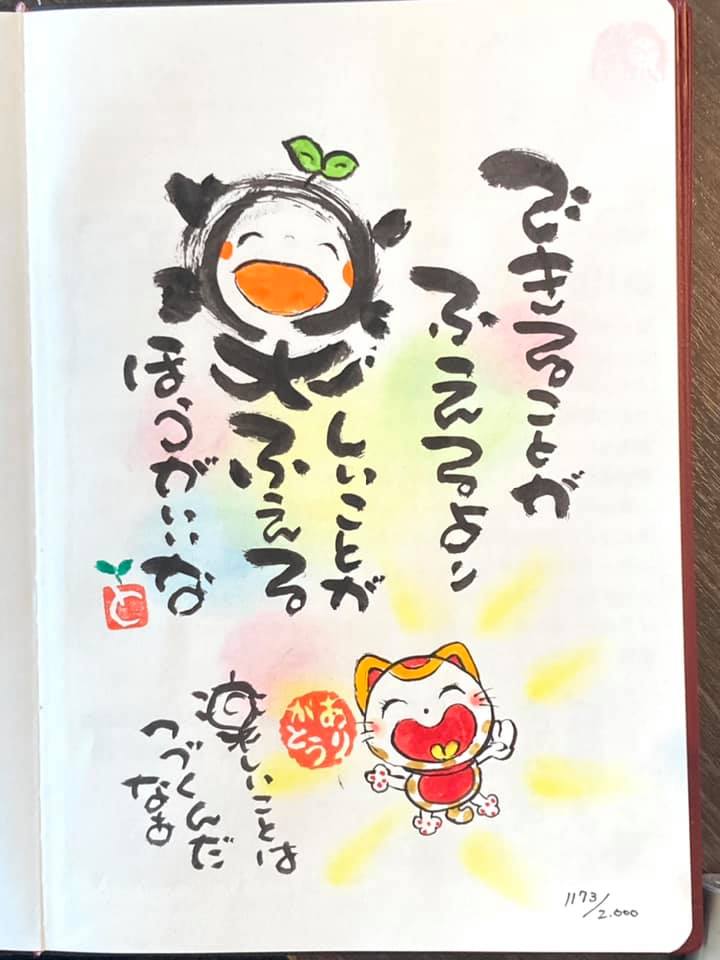 できることが
ふえるより
楽しいことが
ふえる
ほうがいいな
と
楽しいことは
つづくんだ
なぁ
あり
がとう
1173/2.000